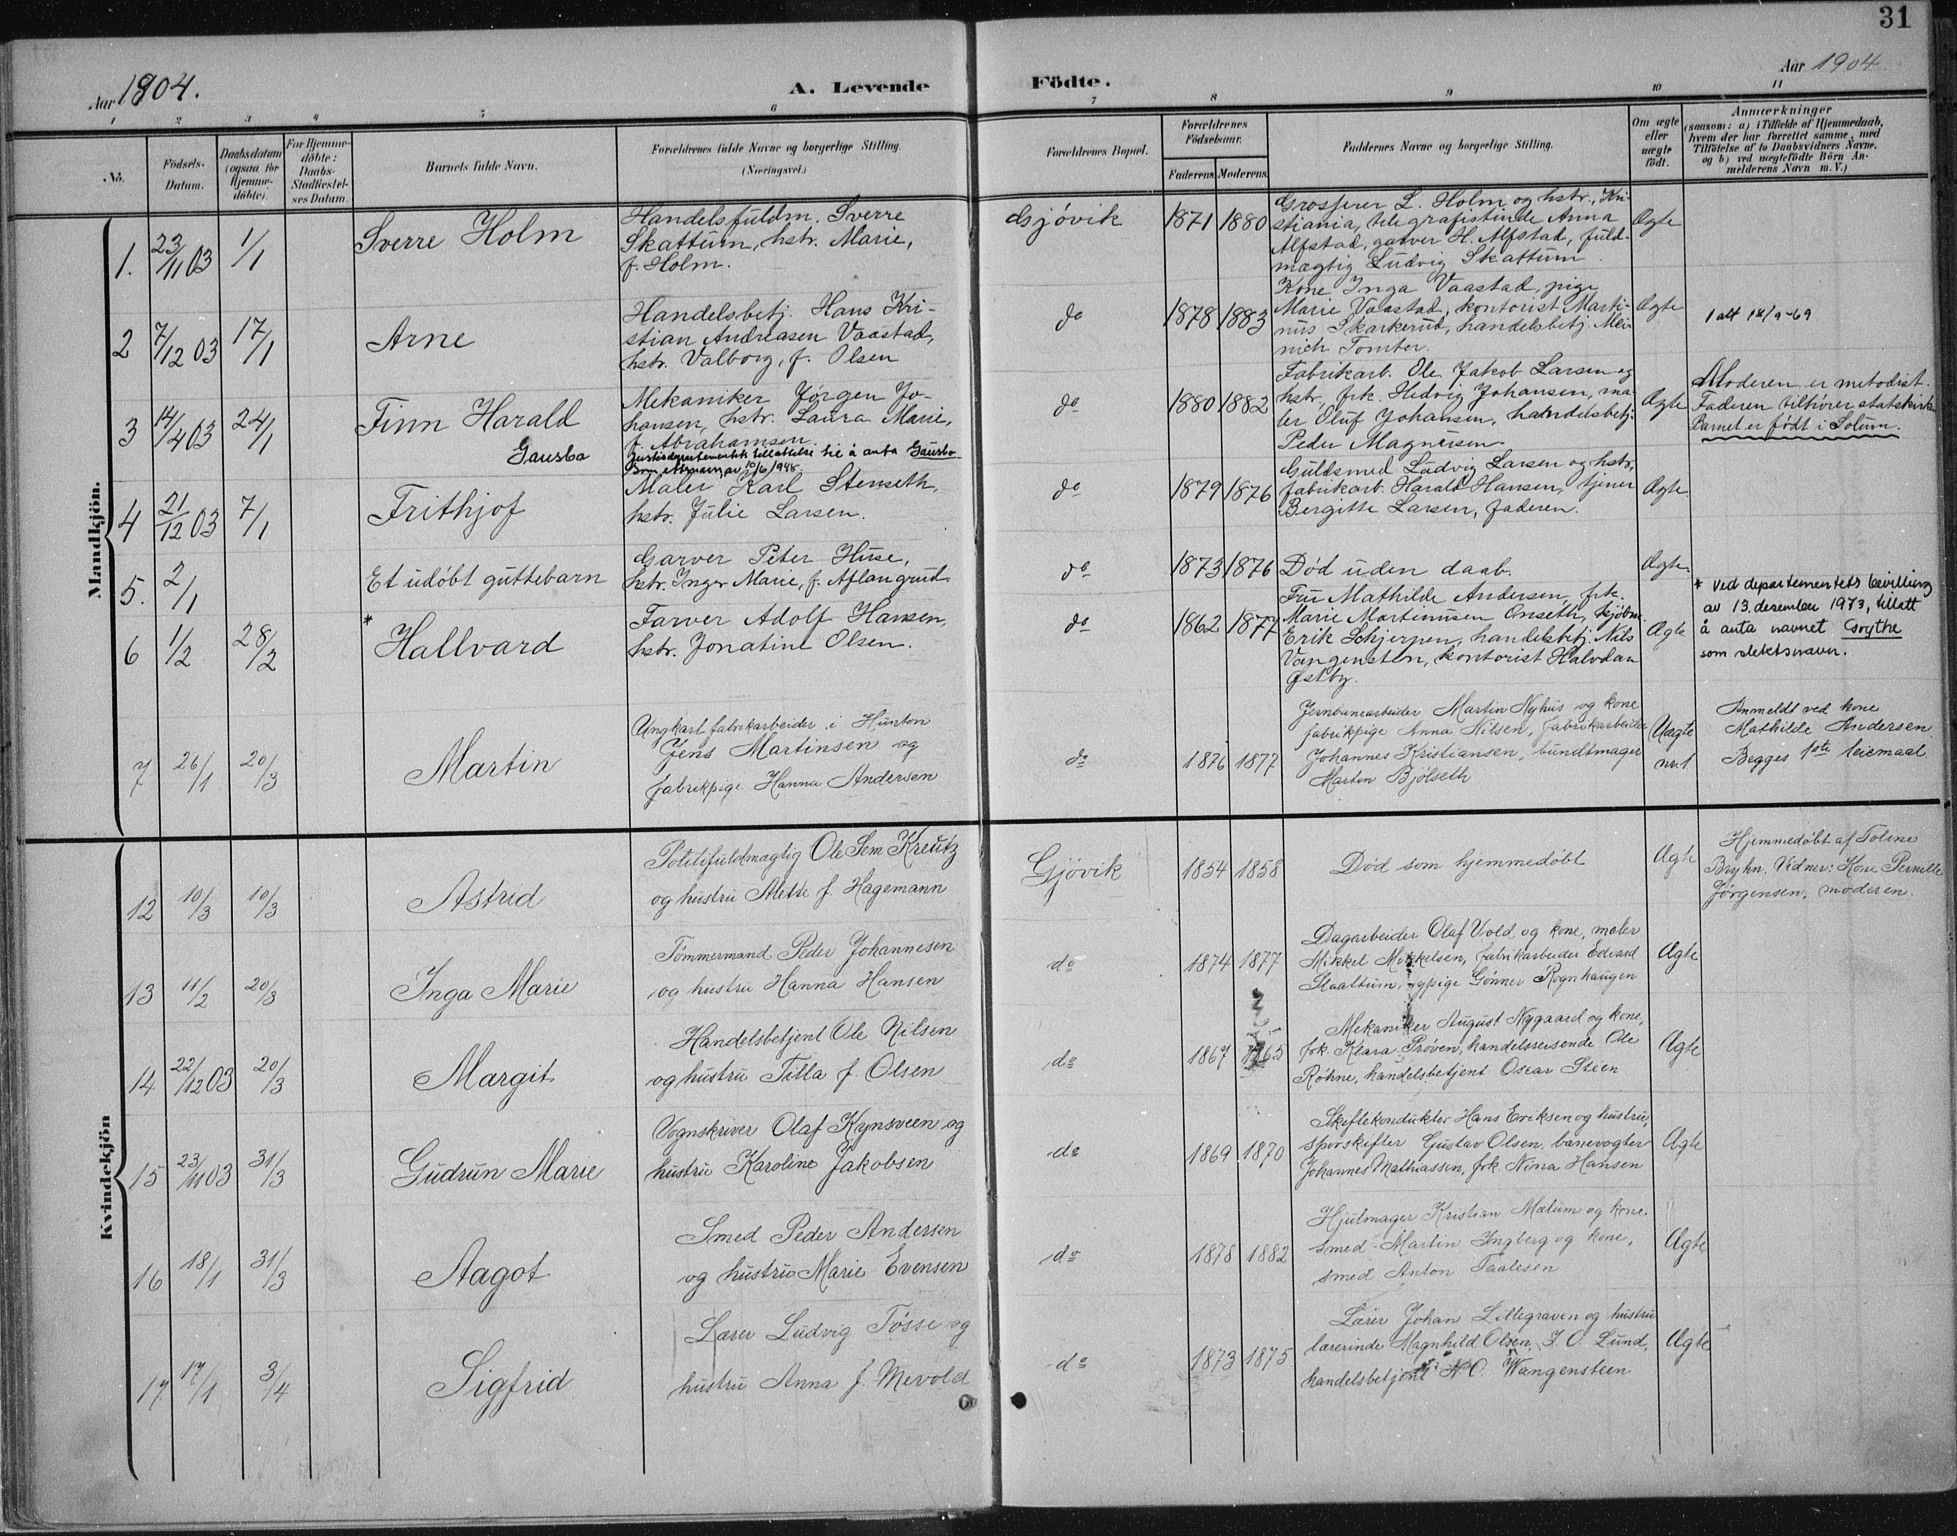 31
Aar 1904.
A. Levende Födte.
Aar 1904.
1 2 3 4 5 6 7 8 9 10 11
No.
Födsels-
Datum.
Daabsdatum
(ogsaa for
Hjemme-
döbte).
For Hjemme-
döbte:
Daabs-
Stadfæstel-
ses Datum.
Barnets fulde Navn.
Forældrenes fulde Navne og borgerlige Stilling.
(Næringsvei.)
Forældrenes Bopæl.
Forældrenes
Födselsaar.
Faderens. Moderens.
Faddernes Navne og borgerlige Stilling.
Om ægte
eller
uægte
födt.
Anmærkninger
(saasom: a) i Tilfælde af Hjemmedaab,
hvem der har forrettet samme, med
Tilföielse af to Daabsvidners Navne,
og b) ved uægtefödte Börn An-
melderens Navn m. V.)
Mandkjön.
1. 23/11 03 1/1 Sverre Holm
Handelsfuldm. Sverre
Skattum, hstr. Marie,
f. Holm.
Gjövik 1871 1880
Grosserer L. Holm og hstr., Kri-
stiania, telegrafistinde Anna
Alfstad, garver H. Alfstad, fuld-
mægtig Ludvig Skattum.
Ægte
2 7/12 03 17/1 Arne
Handelsbetj. Hans Kri-
stian Andreasen Vaastad,
hstr. Valborg, f. Olsen
do 1878 1883
Kone Inga Vaastad, pige
Marie Vaastad, kontorist Marti-
nus Skarkerud, handelsbetj. Mei-
nich Tomter.
Ægte
1 att 18/9-69
3 14/4 03 24/1 Finn Harald
Gausbo
Mekaniker Jørgen Jo-
hansen, hstr. Laura Marie,
f. Abrahamsen.
Justisdepartementets tillatelse til å anta Gausbo
som etternavn av 10/6 1948.
do 1880 1882
Fabrikarb. Ole Jakob Larsen og
hstr., frk. Hedvig Johansen, ma-
ler Oluf Johansen, handelsbetj.
Peder Magnersen
Ægte
Moderen er metodist.
Faderen tilhører statskirk.
Barnet er født i Solum.
4 21/12 03 7/1 Frithjof
Maler Karl Stenseth,
hstr. Julie Larsen.
do 1879 1876
Guldsmed Ludvig Larsen og hstr.,
fabrikarb. Harald Hansen, tjener
Bergitte Larsen, faderen.
Ægte
5. 2/1 Et udøbt guttebarn
Garver Peter Huse,
hstr. Inger Marie, f. Aflangrud.
do 1873 1876
Død uden daab.
Ægte
6 1/2 28/2 * Hallvard
Farver Adolf Hansen,
hstr. Jonatine Olsen.
do 1862 1877
Fru Mathilde Andersen, frk.
Marie Martinusen Onseth, kjøbm.
Erik Schjerpen, handelsbetj. Nils
Vangensten, kontorist Halvdan
Østby.
Ægte
* Ved departementets bevilling
av 13. desember 1973, tillatt
å anta navnet Grythe
som slektsnavn.
7 26/1 20/3 Martin
Ungkarl fabrikarbeider i Hunton
Jens Martinsen og
fabrikpige Hanna Andersen
do 1876 1877
Jernbanearbeider Martin Nyhus og kone
fabrikpige Anna Nilsen, fabrikarbeider
Johannes Kristiansen, bundtmager
Martin Bjølseth
Uægte
nr. 1
Anmeldt ved kone
Mathilde Andersen
Begges 1ste leiemaal
Kvindekjön
12 10/3 10/3 Astrid
Politifuldmægtig Ole Sem Kreutz
og hustru Alette f. Hagemann
Gjövik 1854 1858
Död som hjemmedøbt
Ægte
Hjemmedøbt af Toline
Bryhn. Vidner: Kone Pernille
Jørgensen, moderen.
13 11/2 20/3 Inga Marie
Tömmermand Peder Johannesen
og hustru Hanna Hansen
do 1874 1877
Dagarbeider Olaf Vold og kone, maler
Mikkel Mikkelsen, fabrikarbeider Edvard
Slaattum, sypige Gönner Rognhaugen
Ægte
14 22/12 03 20/3 Margit
Handelsbetjent Ole Nilsen
og hustru Tilla f. Olsen
do 1867 1865
Mekaniker August Nygaard og kone,
frk. Klara Prøven, handelsreisende Ole
Røhne, handelsbetjent Oscar Steen
Ægte
15 23/11 03 31/3 Gudrun Marie
Vognskriver Olaf Kynsveen og
hustru Karoline Jakobsen
do 1869 1870
Skiftekonduktør Hans Eriksen og hustru,
sporskifter Gustav Olsen, banevogter
Johannes Mathiassen, frk. Nina Hansen
Ægte
16 18/1 31/3 Aagot
Smed Peder Andersen
og hustru Marie Evensen
do 1878 1882
Hjulmager Kristian Mælum og kone.
smed Martin Ingberg og kone,
smed Anton Paalesen
Ægte
17 17/1 3/4 Sigfrid
Lærer Ludvig Tösse og
hustru Anna f. Mevold
do 1873 1875
Lærer Johan Lillegraven og hustru
lærerinde Magnhild Olsen, J. O. Lund,
handelsbetjent N. O. Wangensteen
Ægte